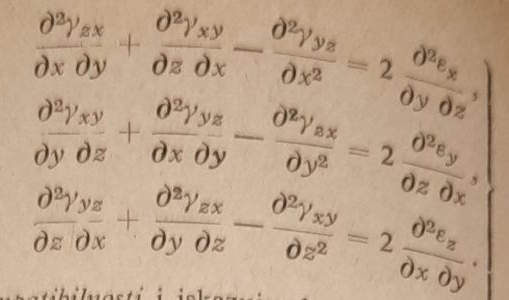 ∂²γzx/∂x ∂y + ∂²γxy/∂z ∂x — ∂²γyz/∂x² = 2 ∂²εx/∂y ∂z,
∂²γxy/∂y ∂z + ∂²γyz/∂x ∂y — ∂²γzx/∂y² = 2 ∂²εy/∂z ∂x,
∂²γyz/∂z ∂x + ∂²γzx/∂y ∂z — ∂²γxy/∂z² = 2 ∂²εz/∂x ∂y.